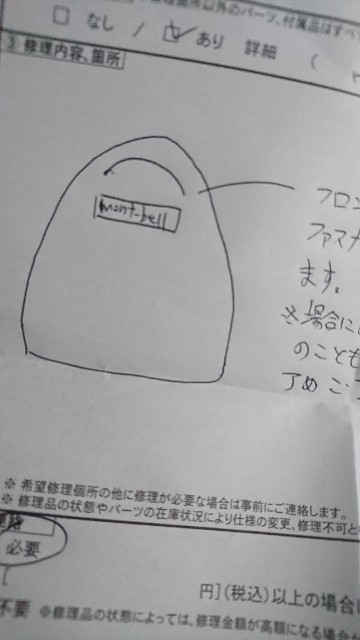 修理箇所以外のパーツ、付属品はすべ
□ なし / ☑ あり 詳細 (
③ 修理内容、箇所
mont-bell
フロン
ファスナ
ます。
※場合に
のことも
了めご
※ 希望修理個所の他に修理が必要な場合は事前にご連絡します。
※ 修理品の状態やパーツの在庫状況により仕様の変更、修理不可と
必要
円](税込)以上の場合
不要 ※修理品の状態によっては、修理金額が高額になる場